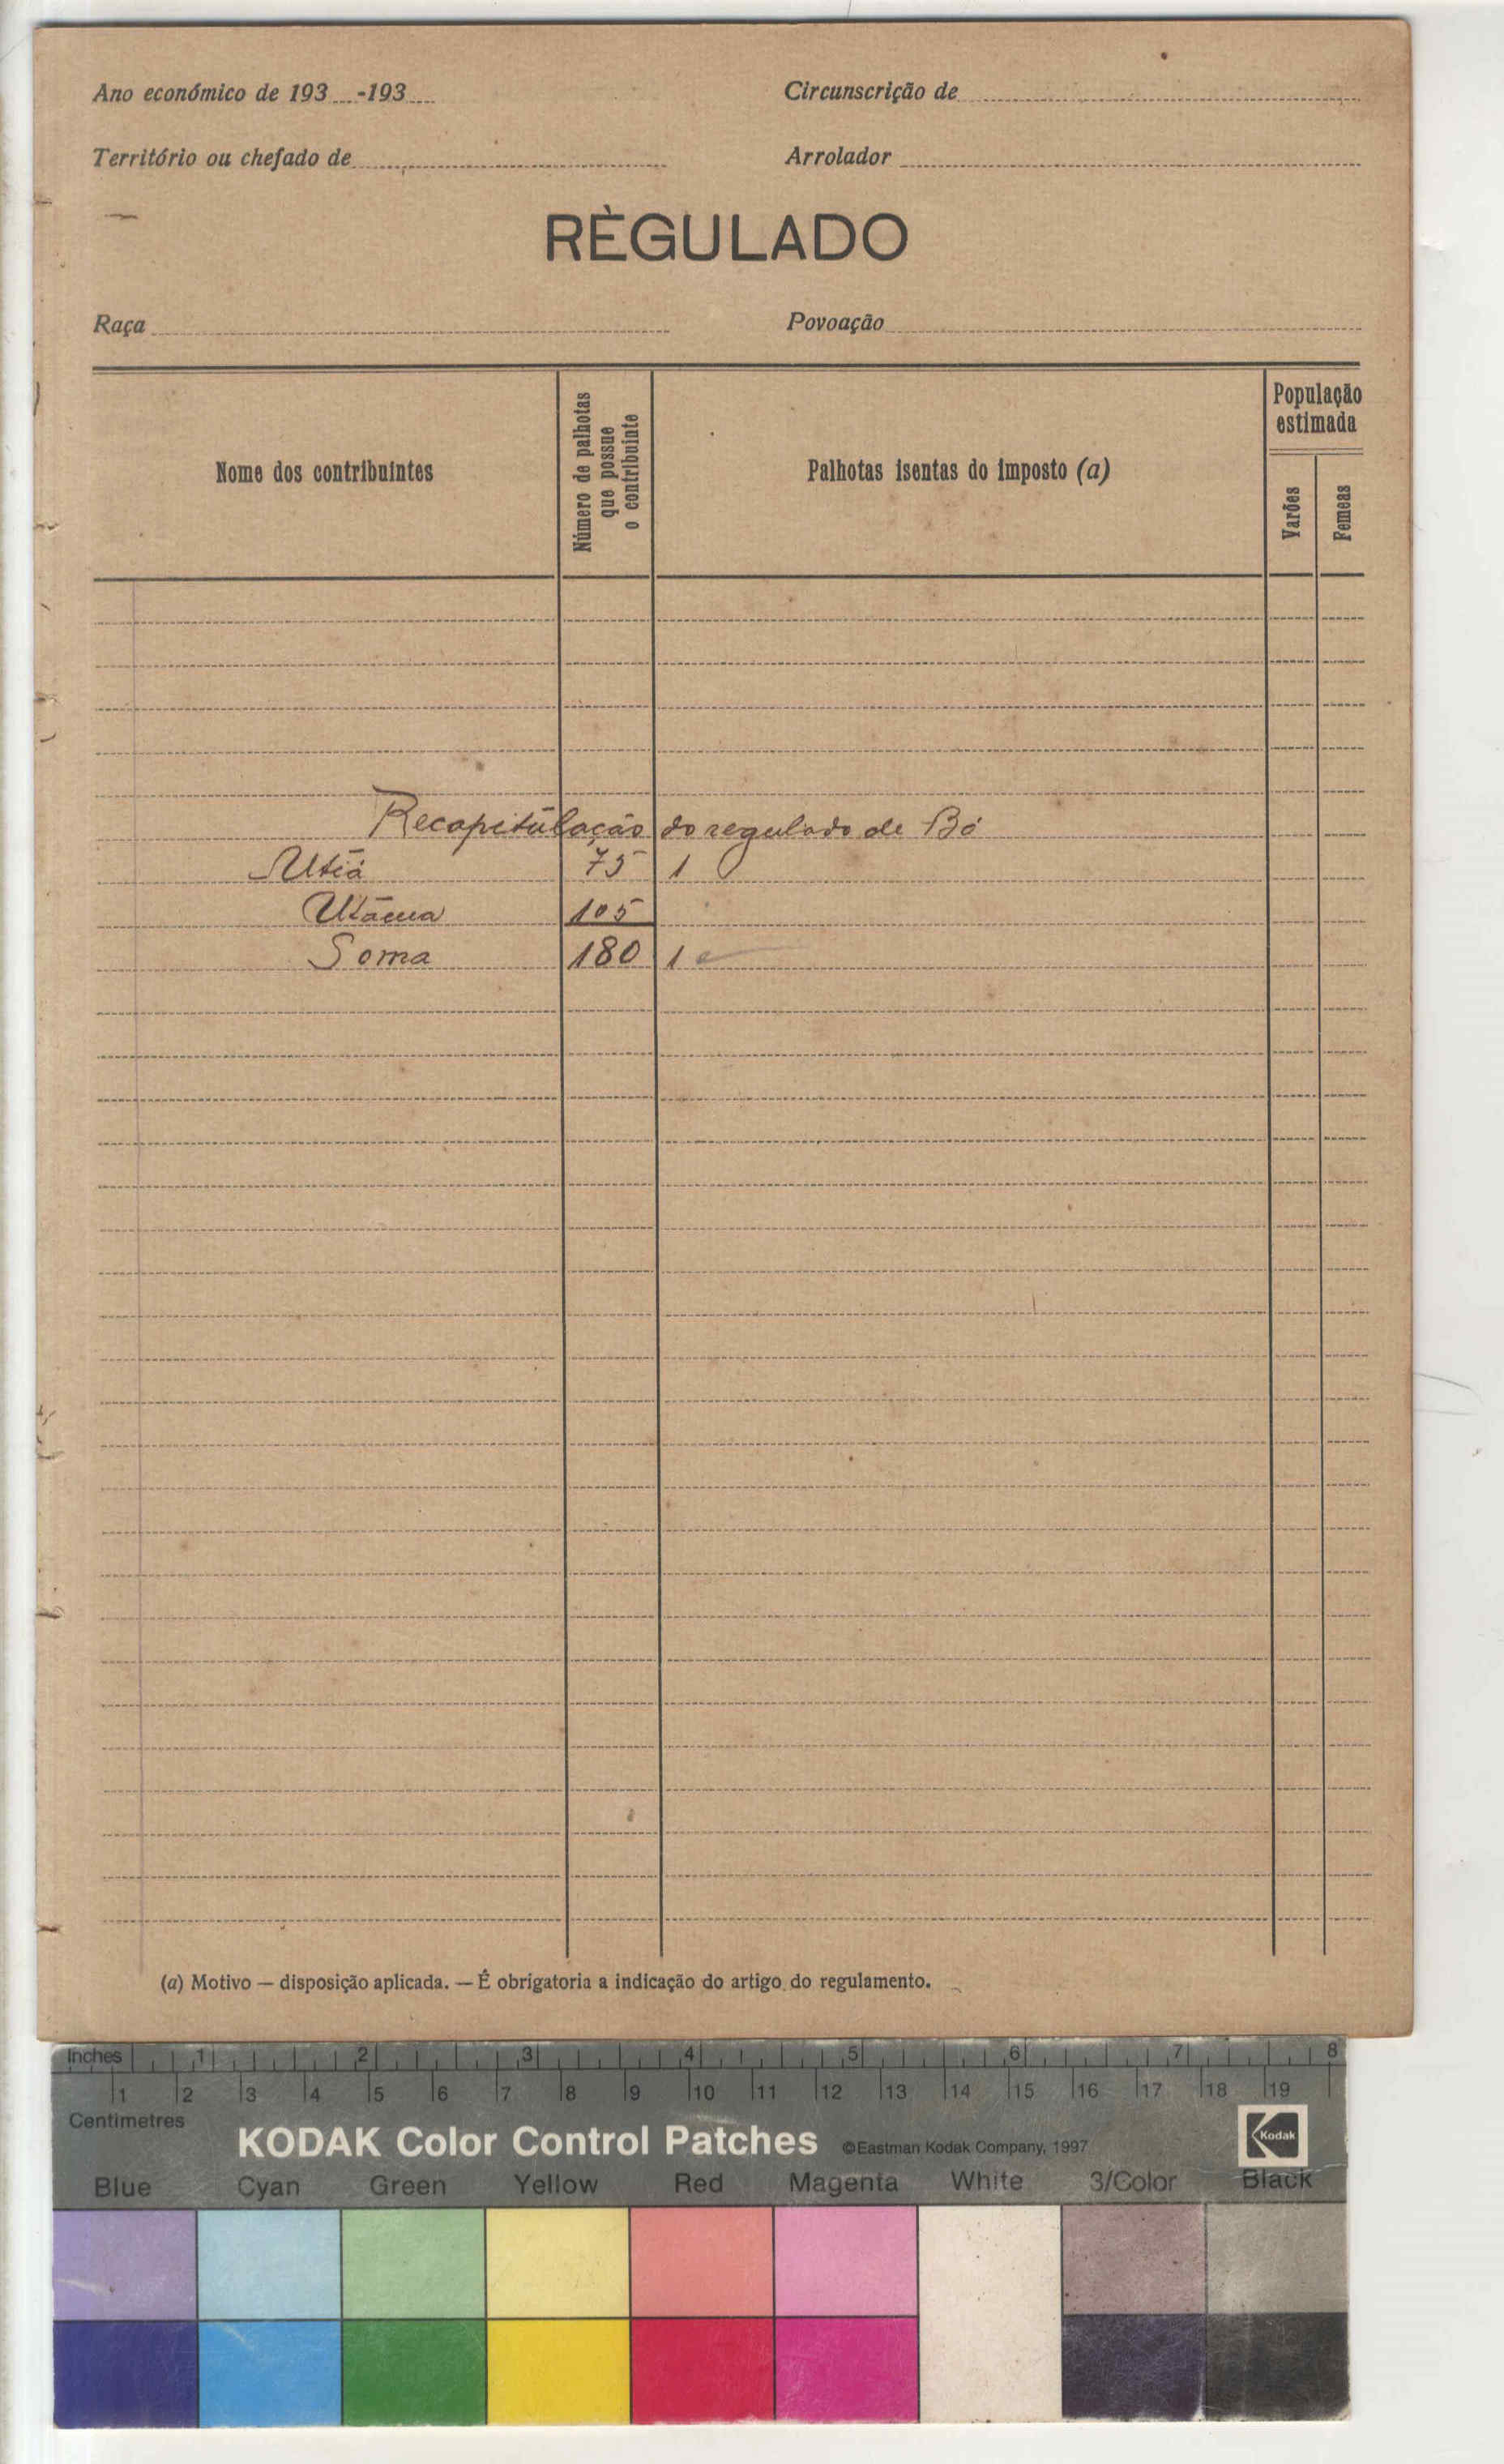 Ano económico de 193....-193....
Circunscrição de
Território ou chefado de
Arrolador
RÈGULADO
Raça
Povoação
Nome dos contribuintes
Número de palhotas que possue o contribuinte
Palhotas isentas do imposto (a)
População estimada
Varões
Femeas
Recapitulação do regulado de Bó
Utiá 75 1
Utácua 105
Soma 180 1
(a) Motivo — disposição aplicada. — É obrigatoria a indicação do artigo do regulamento.
Inches 1 2 3 4 5 6 7 8
1 2 3 4 5 6 7 8 9 10 11 12 13 14 15 16 17 18 19
Centimetres
KODAK Color Control Patches ©Eastman Kodak Company, 1997 Kodak
Blue Cyan Green Yellow Red Magenta White 3/Color Black